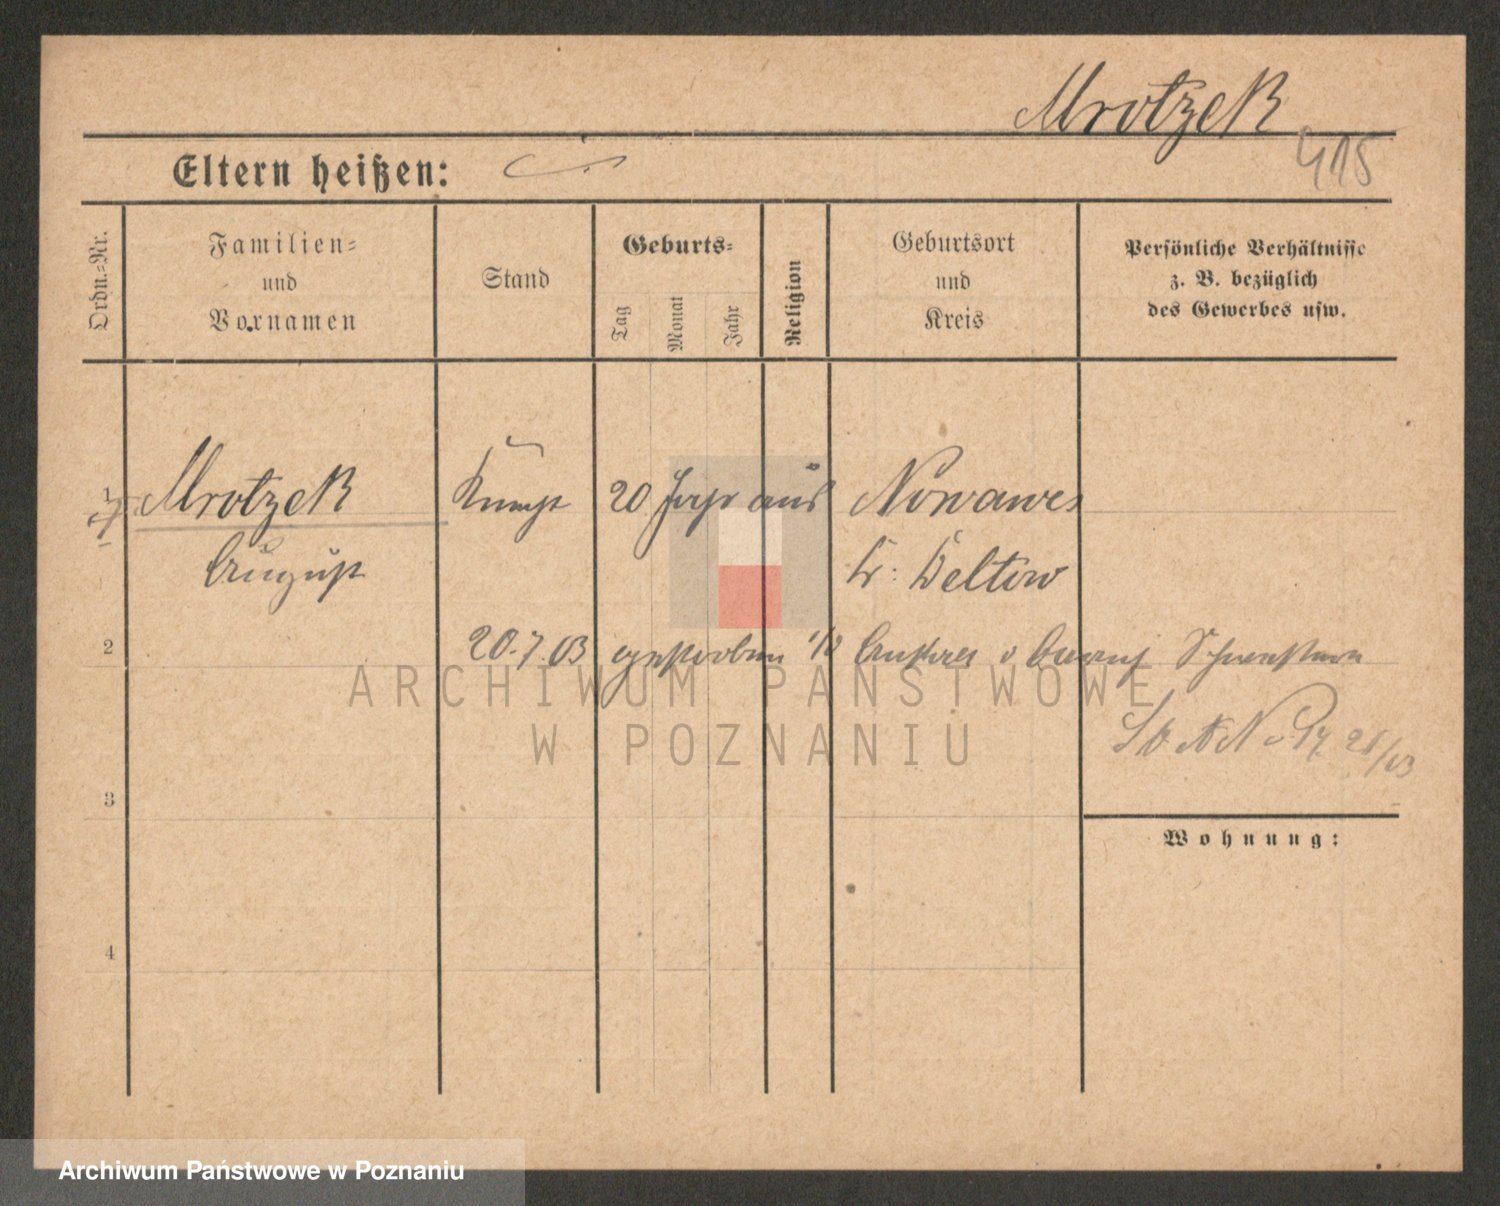 Mrotzek
415
Eltern heißen:
Ordn.=Nr.
Familien=
und
Vornamen
Stand
Geburts=
Tag
Monat
Jahr
Religion
Geburtsort
und
Kreis
Persönliche Verhältnisse
z. B. bezüglich
des Gewerbes usw.
1 Mrotzek 20 Jahr aus Nowawes
August Kr: Teltow
2 20.7.03 gestorben
3
Wohnung:
4
ARCHIWUM PAŃSTWOWE
W POZNANIU
Archiwum Państwowe w Poznaniu